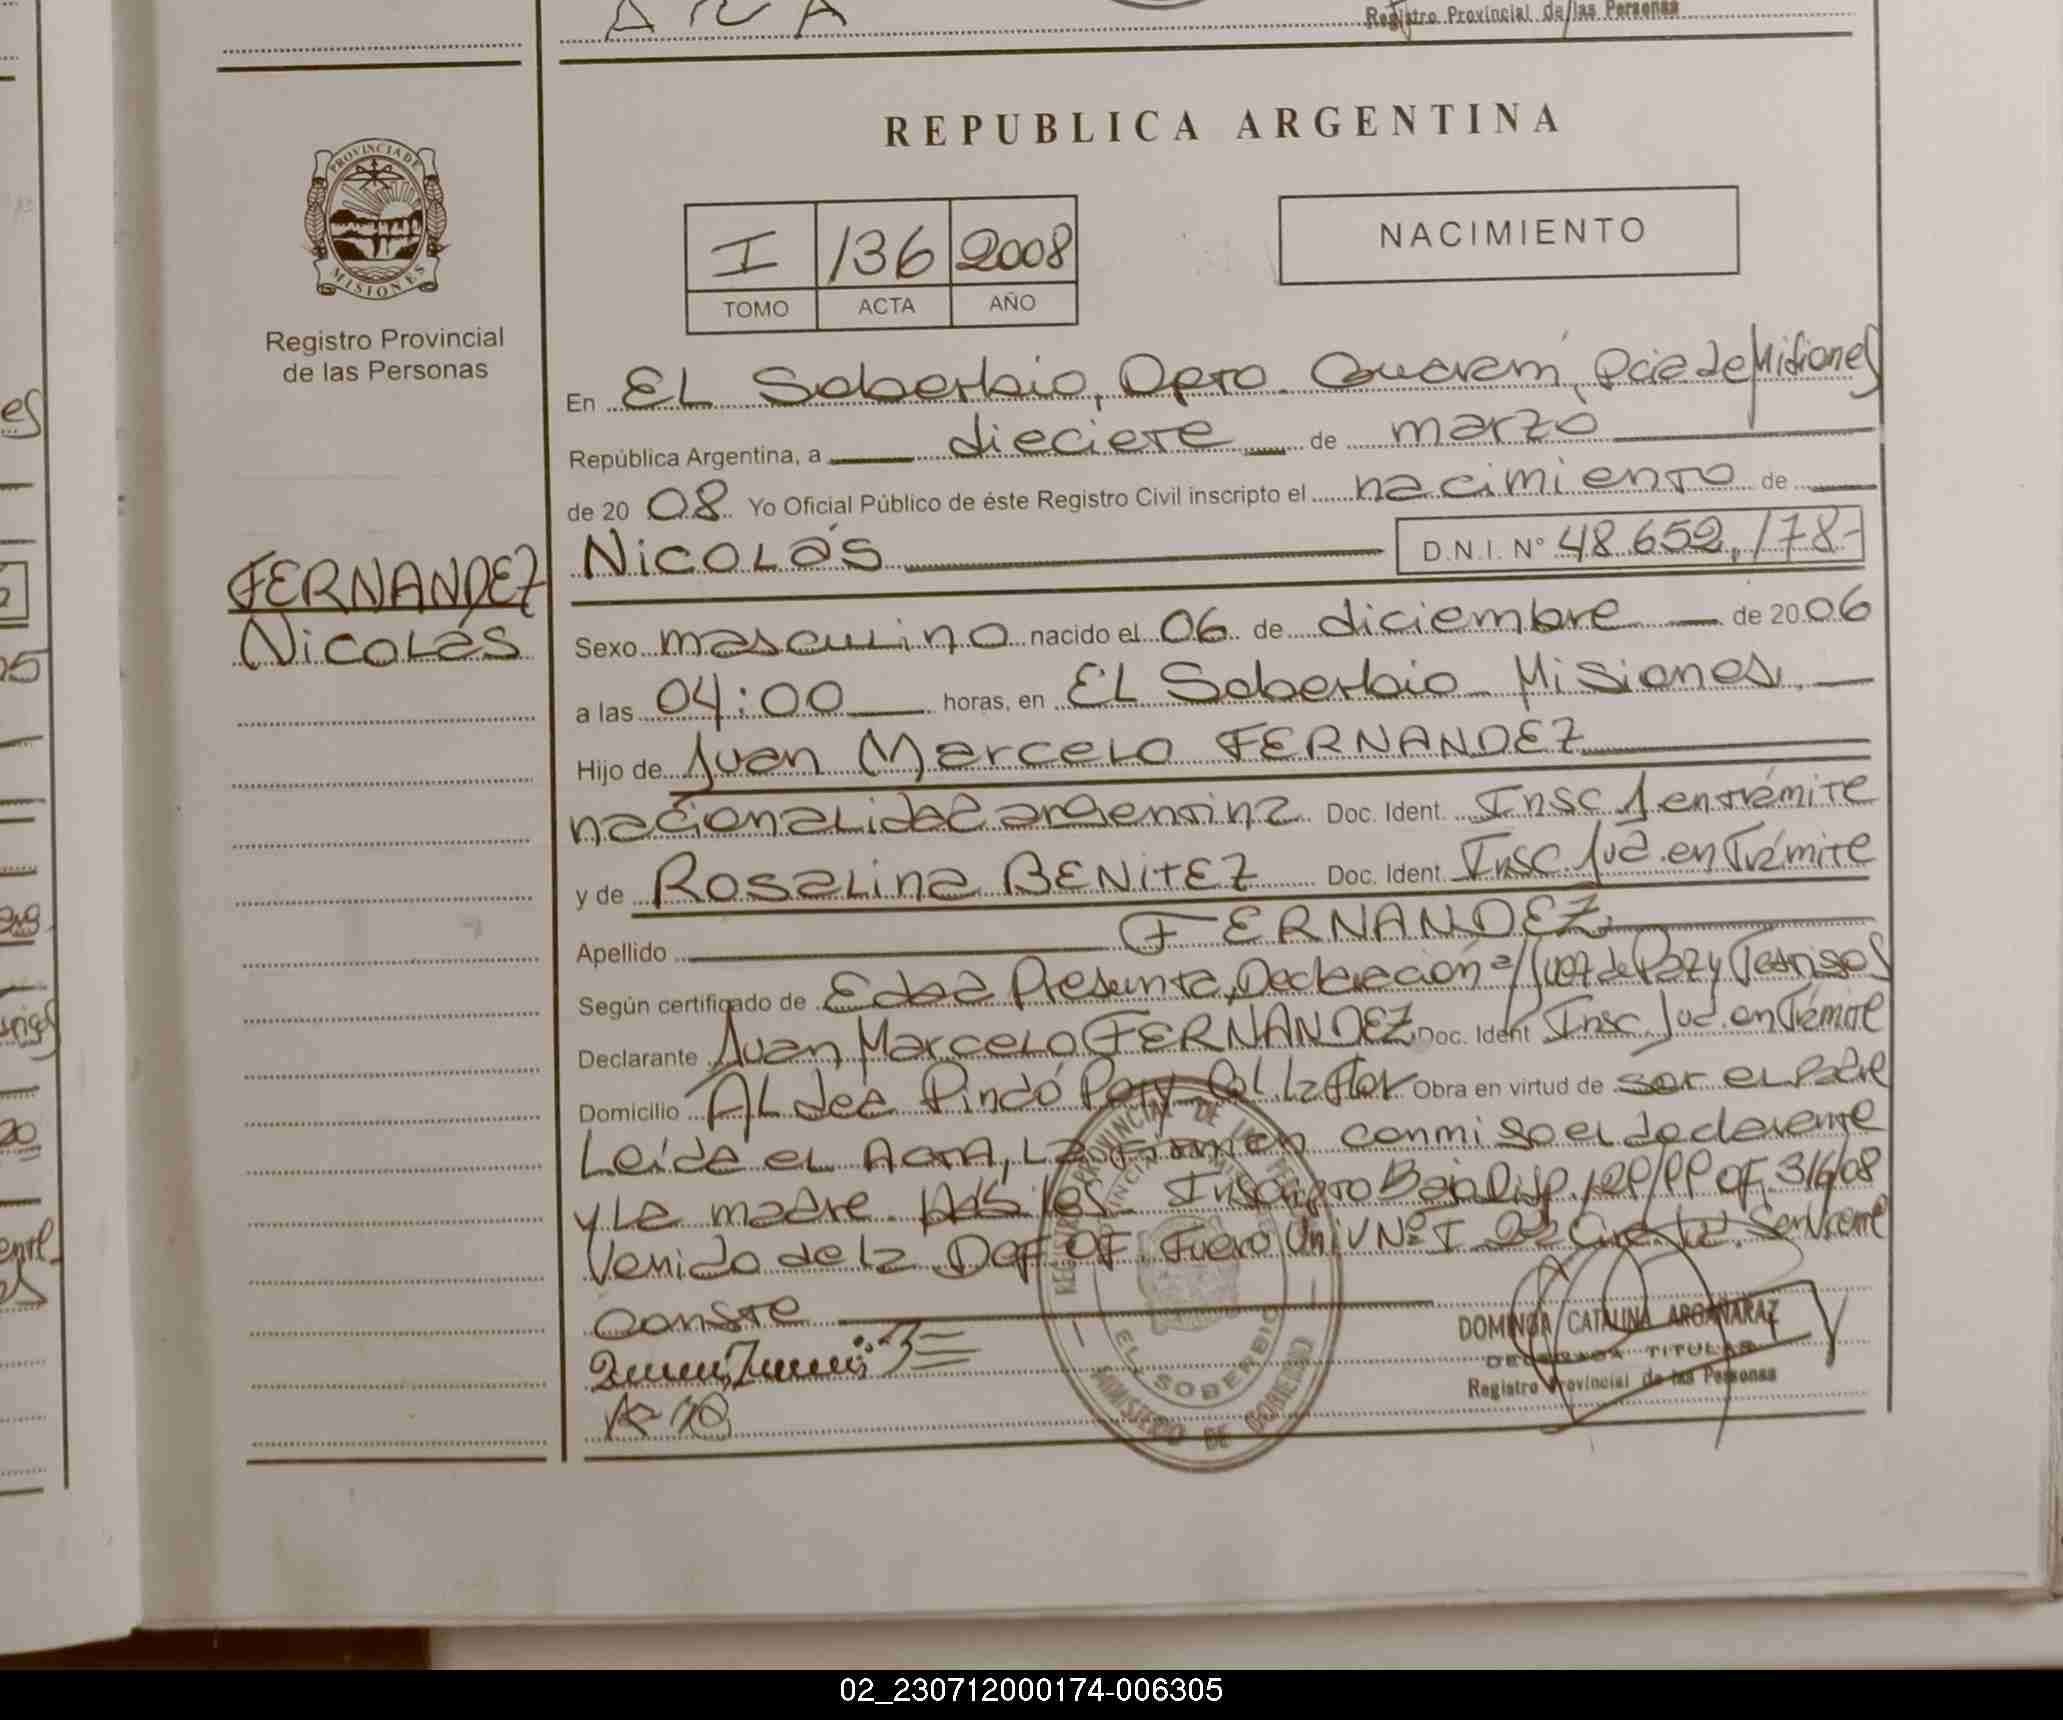 Registro Provincial de las Personas
REPUBLICA ARGENTINA
PROVINCIA DE MISIONES
Registro Provincial
de las Personas
I 136 2008
TOMO ACTA AÑO
NACIMIENTO
En EL Soberbio, Dpto. Guaraní, Pcia de Misiones
República Argentina, a dieciete de marzo
de 20 08 Yo Oficial Público de éste Registro Civil inscripto el nacimiento de
FERNANDEZ
Nicolás
Nicolás D.N.I. Nº 48.652.178-
Sexo masculino nacido el 06 de diciembre de 20 06
a las 04:00 horas, en EL Soberbio Misiones.
Hijo de Juan Marcelo FERNANDEZ
nacionalidad argentina Doc. Ident. Insc J en trámite
y de Rosalina BENITEZ Doc. Ident. Insc. Jud. en Trámite
Apellido FERNANDEZ
Según certificado de Edad Presunta, Declaración a/ Juez de Paz y Testigos
Declarante Juan Marcelo FERNANDEZ Doc. Ident Insc. Jud. en Trámite
Domicilio ALdea Pindó Poty Col La Flor Obra en virtud de ser el Padre
Leída el Acta, La Firman conmigo el declarante
y La madre. Inscripto Bajo Disp. OF. 316/08
Venido de la Def OF. Fuero Univ Nº I 2da Circ Jud.
Conste
DOMINGA CATALINA ARGAÑARAZ
DELEGADA TITULAR
Registro Provincial de las Personas
REGISTRO PROVINCIAL DE LAS PERSONAS
EL SOBERBIO
MINISTERIO DE GOBIERNO
02_230712000174-006305